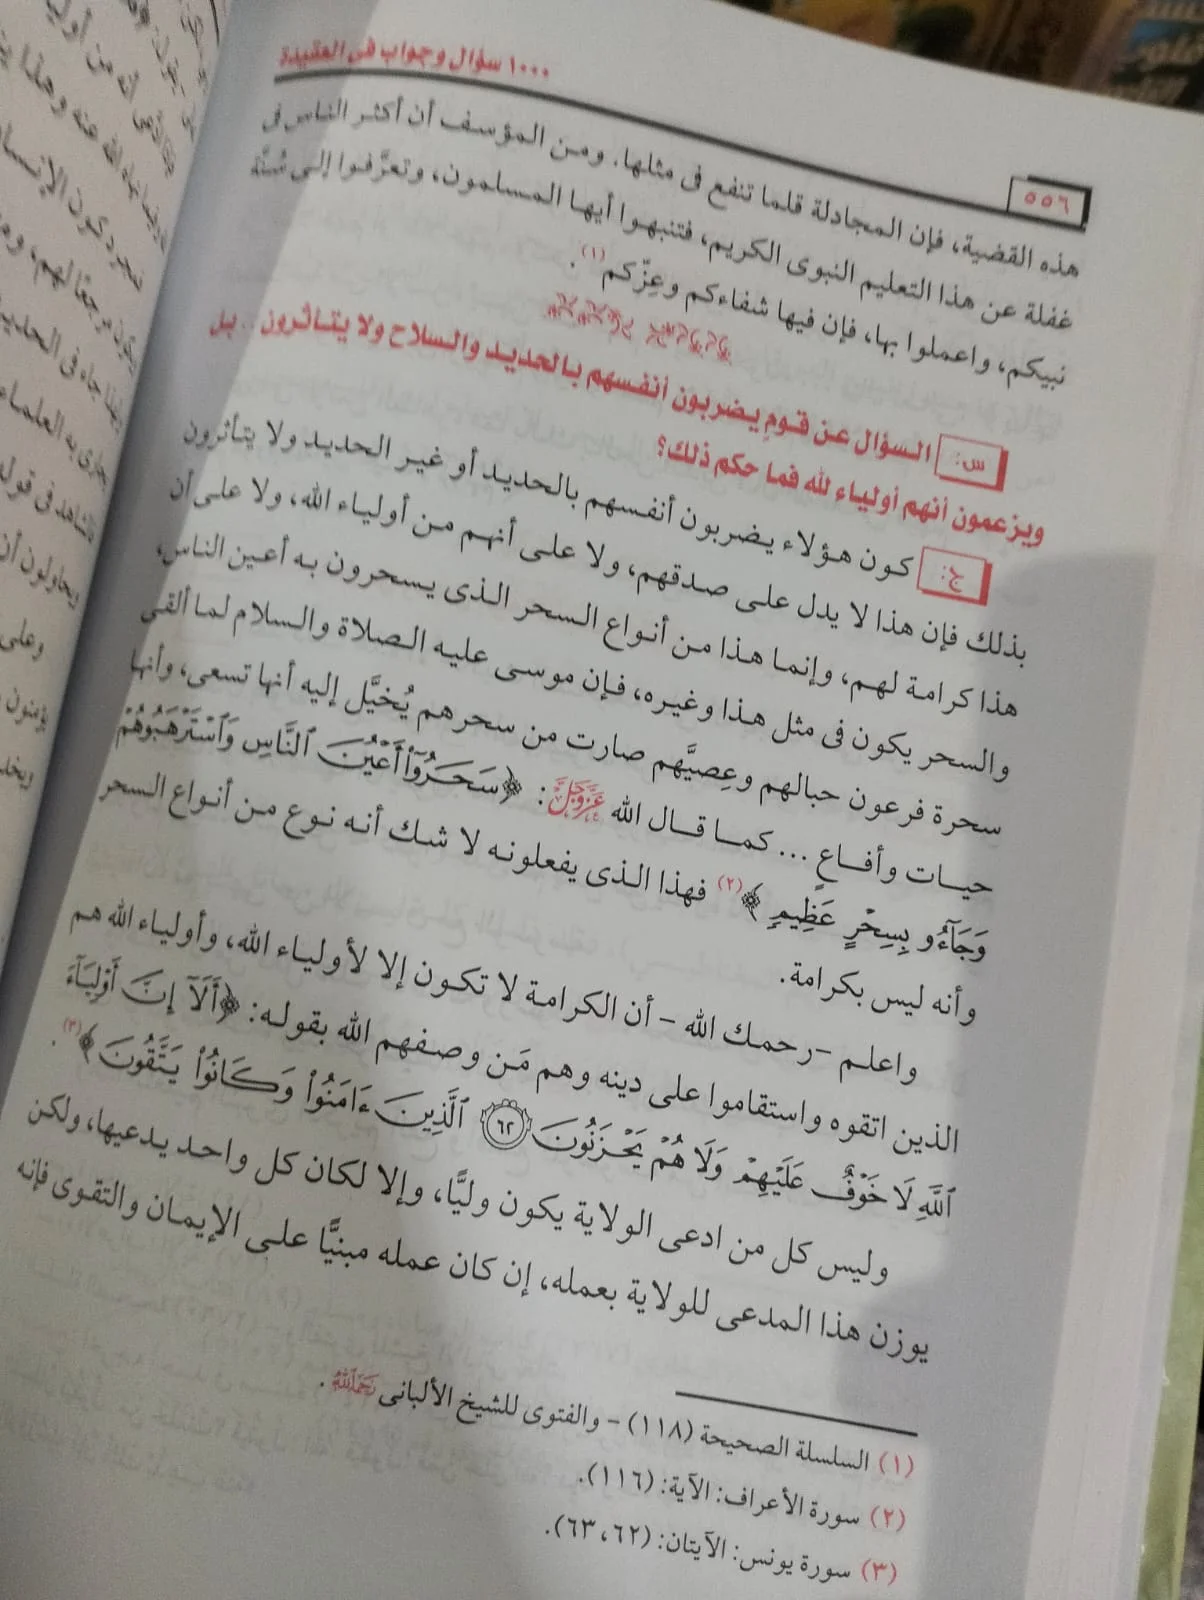 ١٠٠٠ سؤال وجواب فى العقيدة
٥٥٦
هذه القضية، فإن المجادلة قلما تنفع فى مثلها. ومن المؤسف أن أكثر الناس فى
غفلة عن هذا التعليم النبوى الكريم، فتنبهوا أيها المسلمون، وتعرَّفوا إلى سُنَّة
نبيكم، واعملوا بها، فإن فيها شفاءكم وعِزِّكم(١).
س: السؤال عن قومٍ يضربون أنفسهم بالحديد والسلاح ولا يتأثرون .. بل
ويزعمون أنهم أولياء لله فما حكم ذلك؟
ج: كون هؤلاء يضربون أنفسهم بالحديد أو غير الحديد ولا يتأثرون
بذلك فإن هذا لا يدل على صدقهم، ولا على أنهم من أولياء الله، ولا على أن
هذا كرامة لهم، وإنما هذا من أنواع السحر الذى يسحرون به أعين الناس،
والسحر يكون فى مثل هذا وغيره، فإن موسى عليه الصلاة والسلام لما ألقى
سحرة فرعون حبالهم وعِصيَّهم صارت من سحرهم يُخيَّل إليه أنها تسعى، وأنها
حيات وأفاعٍ ... كما قال الله عَزَّوَجَلَّ: ﴿سَحَرُوٓاْ أَعْيُنَ ٱلنَّاسِ وَٱسْتَرْهَبُوهُمْ
وَجَآءُو بِسِحْرٍ عَظِيمٍ﴾(٢) فهذا الذى يفعلونه لا شك أنه نوع من أنواع السحر
وأنه ليس بكرامة.
واعلم -رحمك الله- أن الكرامة لا تكون إلا لأولياء الله، وأولياء الله هم
الذين اتقوه واستقاموا على دينه وهم مَن وصفهم الله بقوله: ﴿أَلَآ إِنَّ أَوْلِيَآءَ
ٱللَّهِ لَا خَوْفٌ عَلَيْهِمْ وَلَا هُمْ يَحْزَنُونَ ٦٢ ٱلَّذِينَ ءَامَنُواْ وَكَانُواْ يَتَّقُونَ﴾(٣).
وليس كل من ادعى الولاية يكون وليًّا، وإلا لكان كل واحد يدعيها، ولكن
يوزن هذا المدعى للولاية بعمله، إن كان عمله مبنيًّا على الإيمان والتقوى فإنه
(١) السلسلة الصحيحة (١١٨) - والفتوى للشيخ الألبانى رَحِمَهُ اللَّهُ.
(٢) سورة الأعراف: الآية: (١١٦).
(٣) سورة يونس: الآيتان: (٦٢، ٦٣).